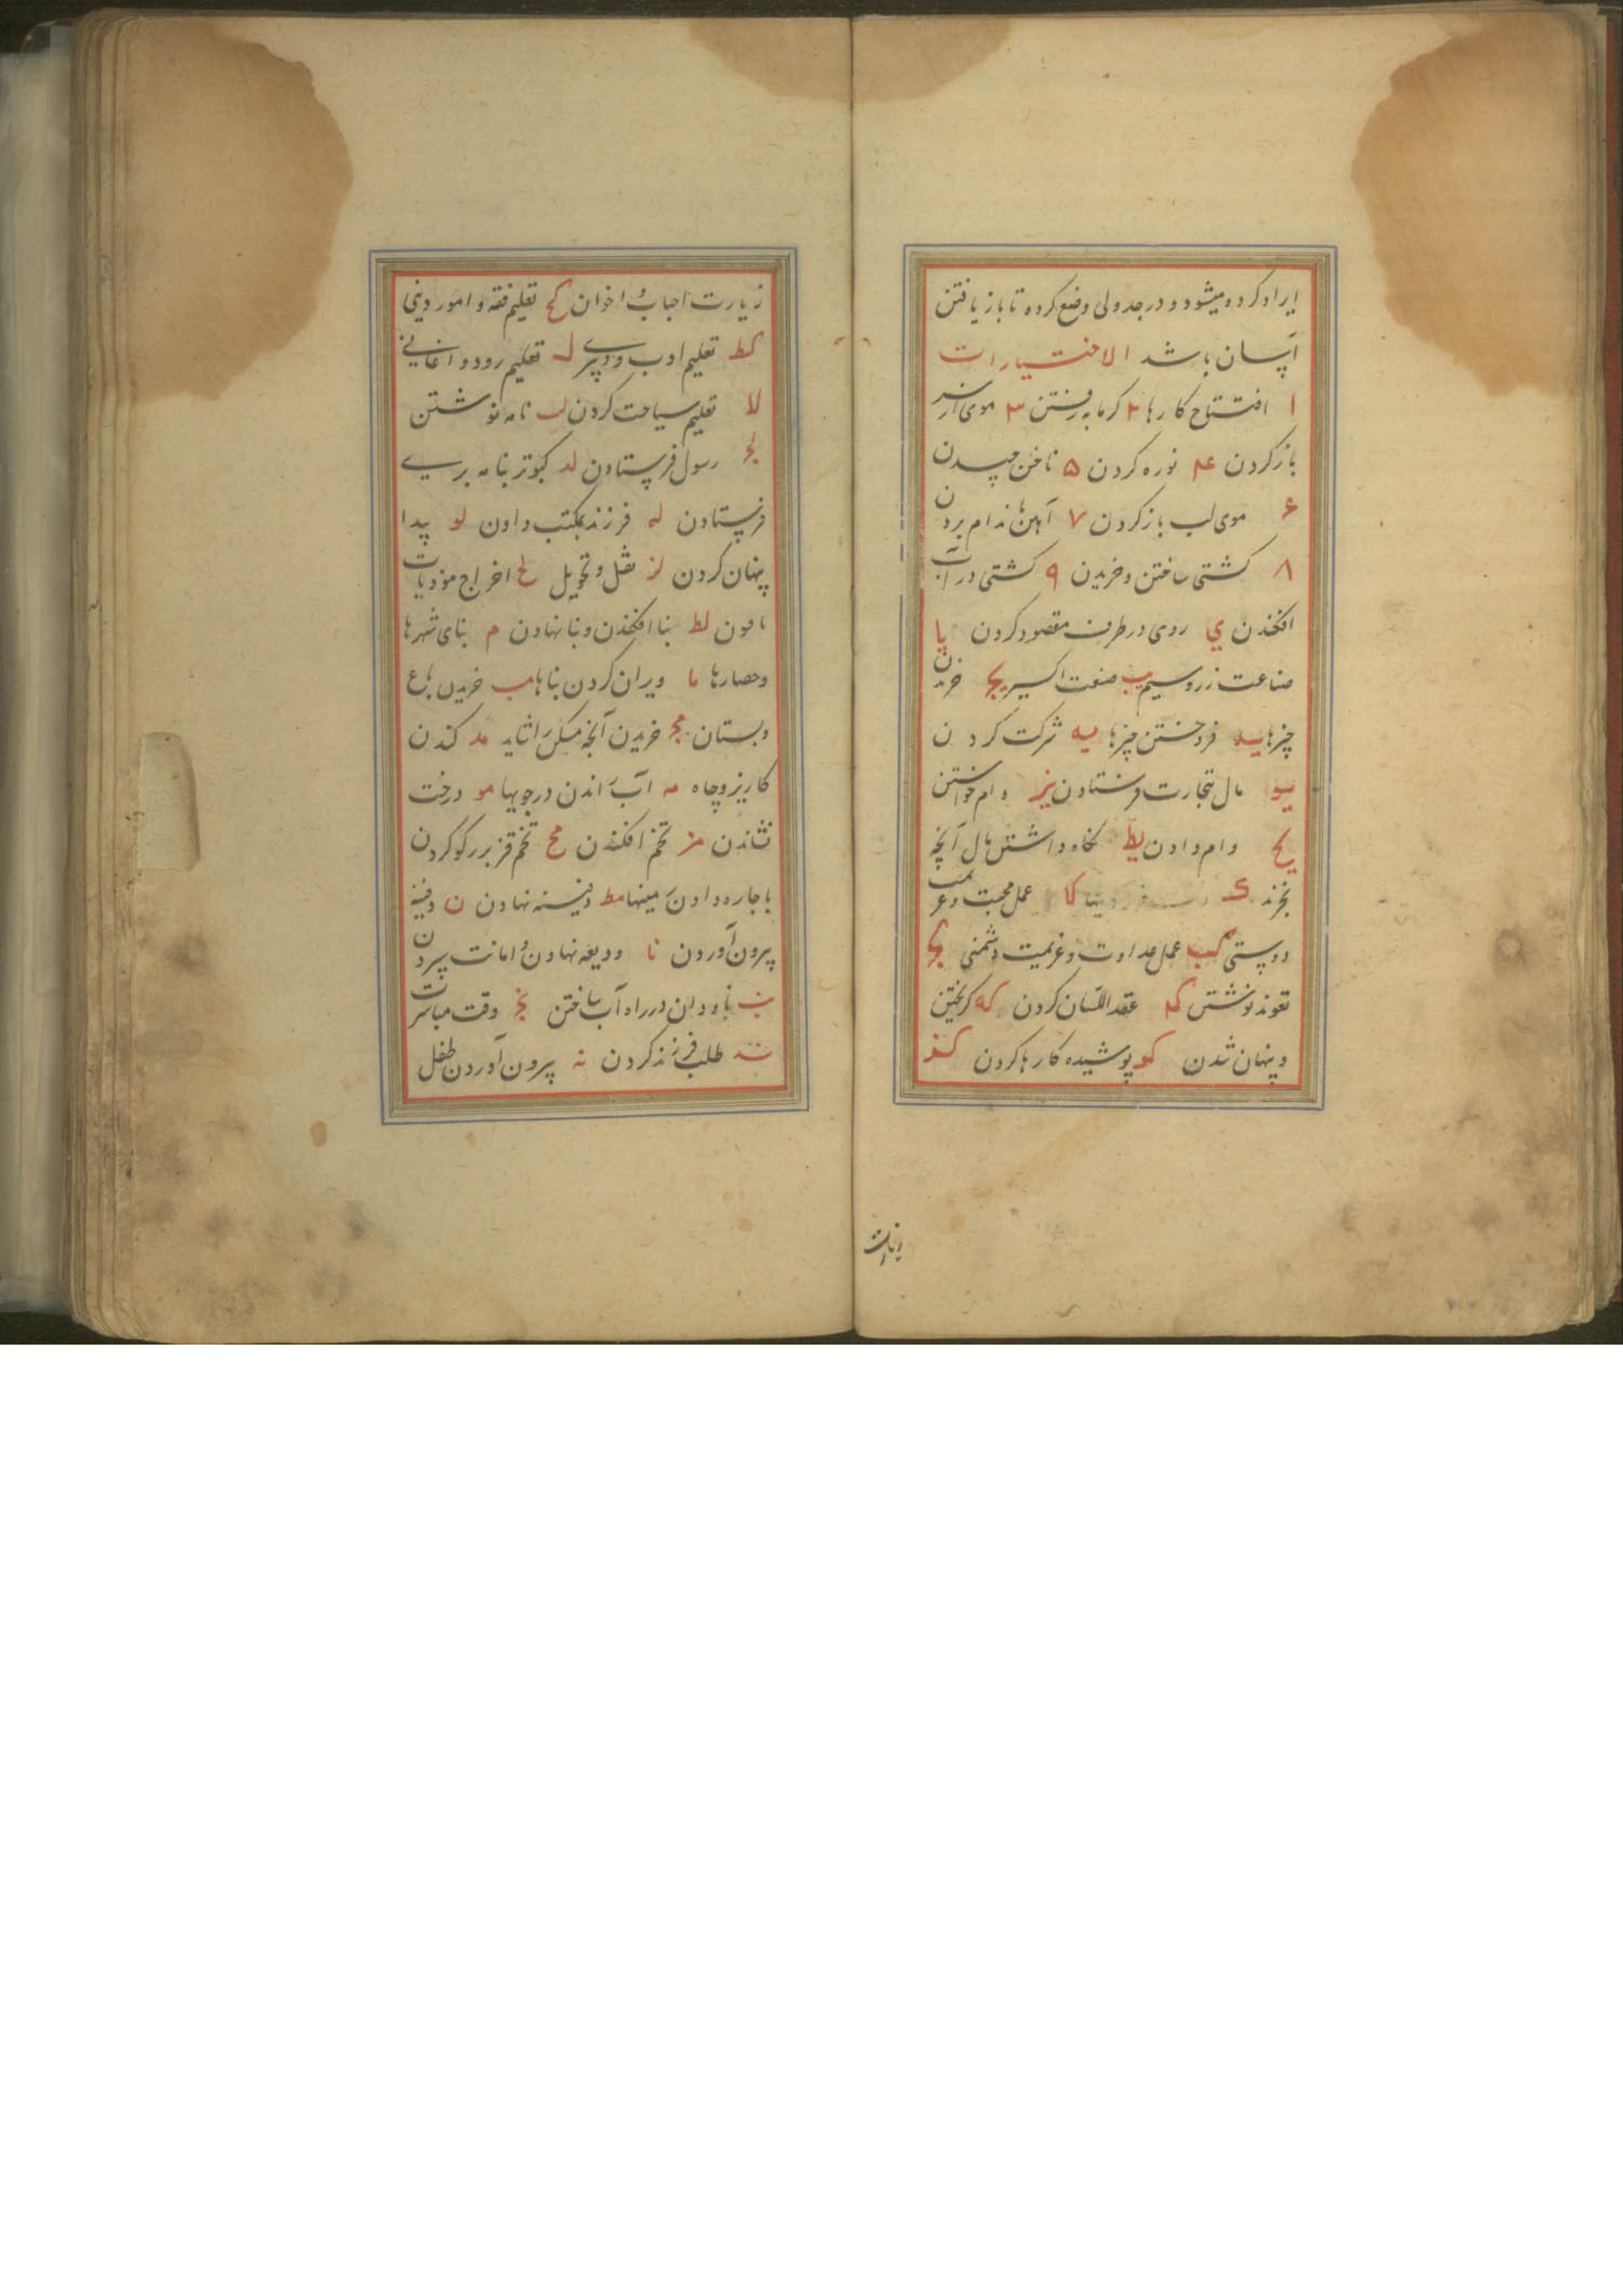 ایراد کرده میشود و در جدولی وضع کرده تا باز یافتن
آسان باشد الاختیارات
ا افتتاح کارها ۲ کرمابه رفتن ۳ موی از سر
باز کردن ۴ نوره کردن ۵ ناخن چیدن
۶ موی لب باز کردن ۷ آهن باندام بردن
۸ کشتی ساختن و خریدن ۹ کشتی در آب
افکندن ي روی در طرف مقصود کردن یا
صناعت زر و سیم یب صنعت اکسیر یج خریدن
چیزها ید فروختن چیزها یه شرکت کردن
یو مال بتجارت فرستادن یز وام خواستن
یح وام دادن یط نکاه داشتن مال آنچه
بخرند ک کا عمل محبت و عزیمت
دوستی کب عمل عداوت و عزیمت دشمنی کج
تعوید نوشتن کد عقد اللسان کردن که کریختن
و پنهان شدن کو پوشیده کارها کردن کز
زیارت
زیارت احباب و اخوان کح تعلیم فقه و امور دینی
کط تعلیم ادب و دبیری ل تعلیم رود و اغانی
لا تعلیم سیاحت کردن لب نامه نوشتن
لج رسول فرستادن لد کبوتر بنامه بری
فرستادن له فرزند بمکتب دادن لو پیدا
پنهان کردن لز نقل و تحویل لح اخراج موذیات
لط بنا افکندن و بنا نهادن م بنای شهرها
و حصارها ما ویران کردن بناها مب خریدن باغ
و بستان مج خریدن آنچه مسکن را شاید مد کندن
کاریز و چاه مه آب راندن در جویها مو درخت
نشاندن مز تخم افکندن مح تخم قز بر رکو کردن
باجاره دادن زمینها مط دفینه نهادن ن دفینه
بیرون آوردن نا ودیعه نهادن و امانت سپردن
نب ناودان در راه آب ساختن نج وقت مباشرت
ند طلب فرزند کردن نه بیرون آوردن طفل